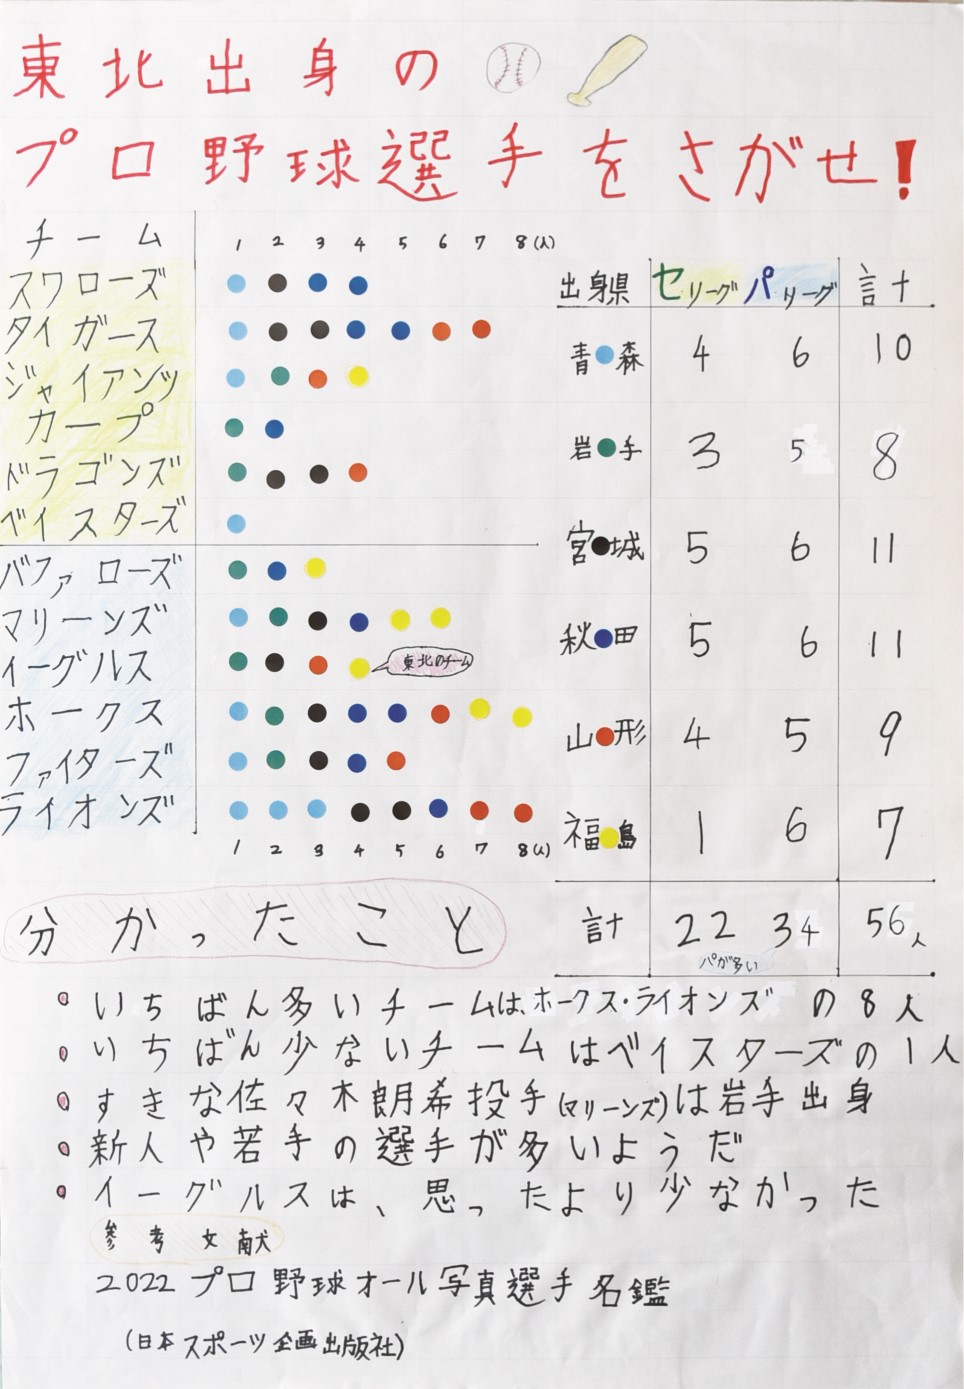 東北出身の
プロ野球選手をさがせ!
チーム 1 2 3 4 5 6 7 8(人)
スワローズ
タイガース
ジャイアンツ
カープ
ドラゴンズ
ベイスターズ
バファローズ
マリーンズ
イーグルス 東北のチーム
ホークス
ファイターズ
ライオンズ
1 2 3 4 5 6 7 8(人)
出身県 セリーグ パリーグ 計
青森 4 6 10
岩手 3 5 8
宮城 5 6 11
秋田 5 6 11
山形 4 5 9
福島 1 6 7
計 22 34 56人
パが多い
分かったこと
いちばん多いチームは、ホークス・ライオンズの8人
いちばん少ないチームはベイスターズの1人
すきな佐々木朗希投手(マリーンズ)は岩手出身
新人や若手の選手が多いようだ
イーグルスは、思ったより少なかった
参考文献
2022プロ野球オール写真選手名鑑
(日本スポーツ企画出版社)